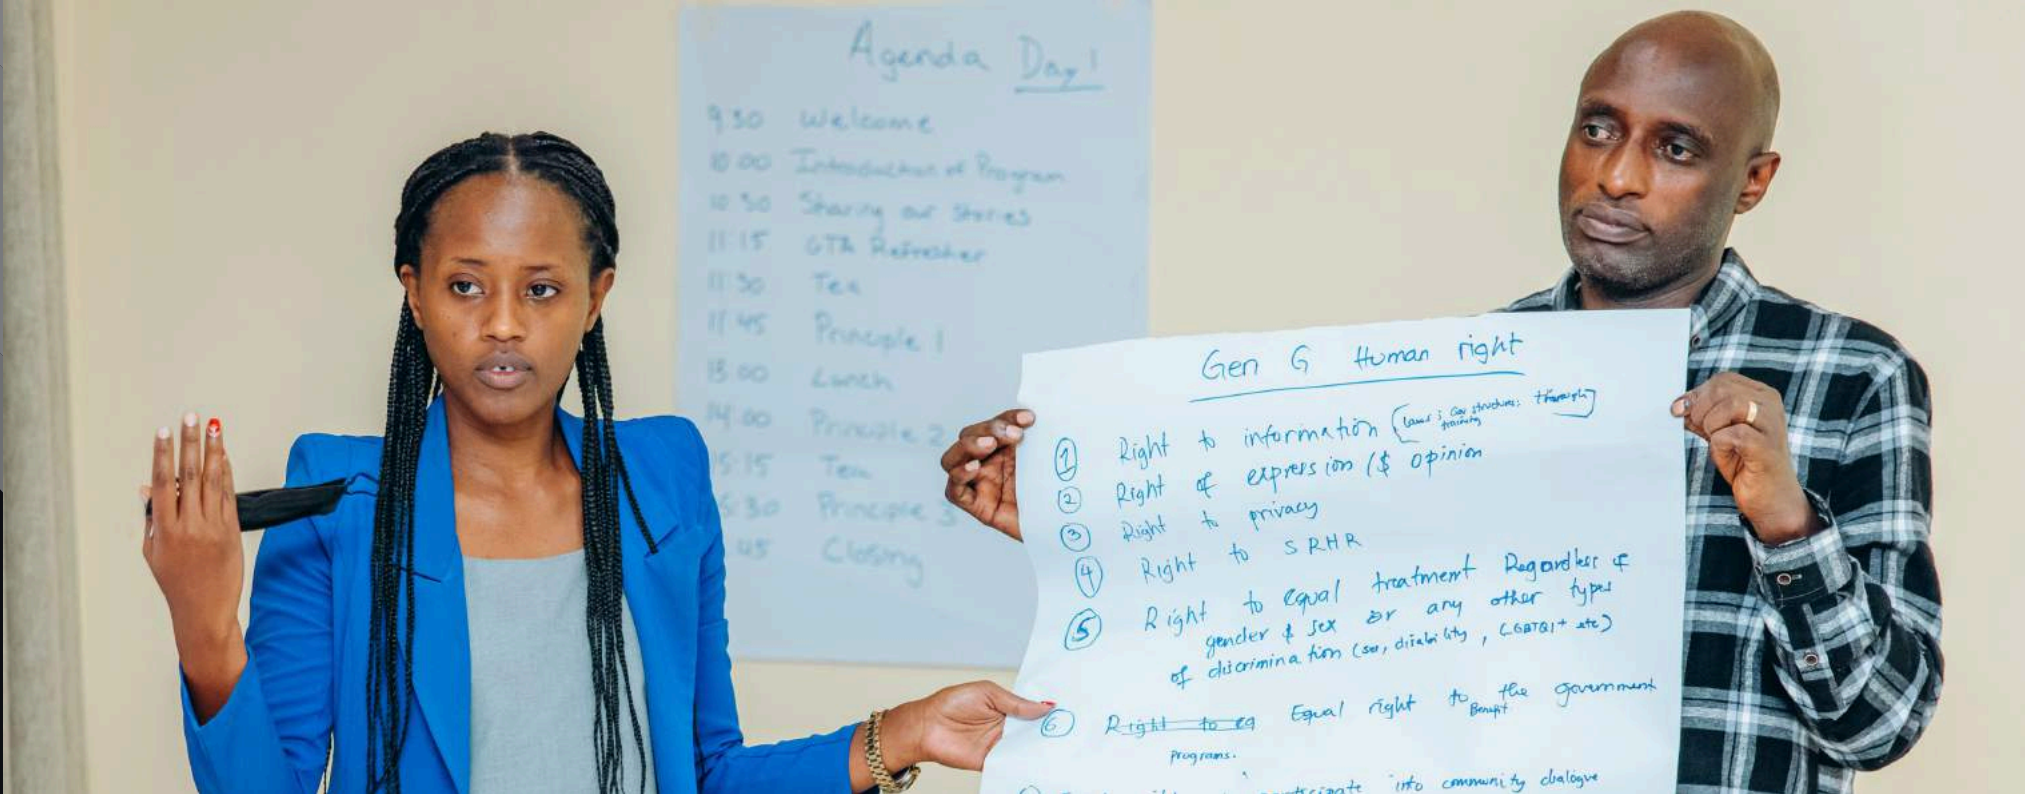 Agenda Day 1
9:30 Welcome
10:00 Introduction of Program
10:30 Sharing our Stories
11:15 GTA Refresher
11:30 Tea
11:45 Principle 1
13:00 Lunch
14:00 Principle 2
15:15 Tea
:30 Principle 3
:45 Closing
Gen G Human right
① Right to information
training through
② Right of expression ($ opinion
③ Right to privacy
④ Right to SRHR
⑤ Right to equal treatment Regardless of
gender & sex or any other types
of discrimination (sex, disability, LGBTQI+ etc)
⑥ Right to eq Equal right to Benefit the government
programs.
into community dialogue